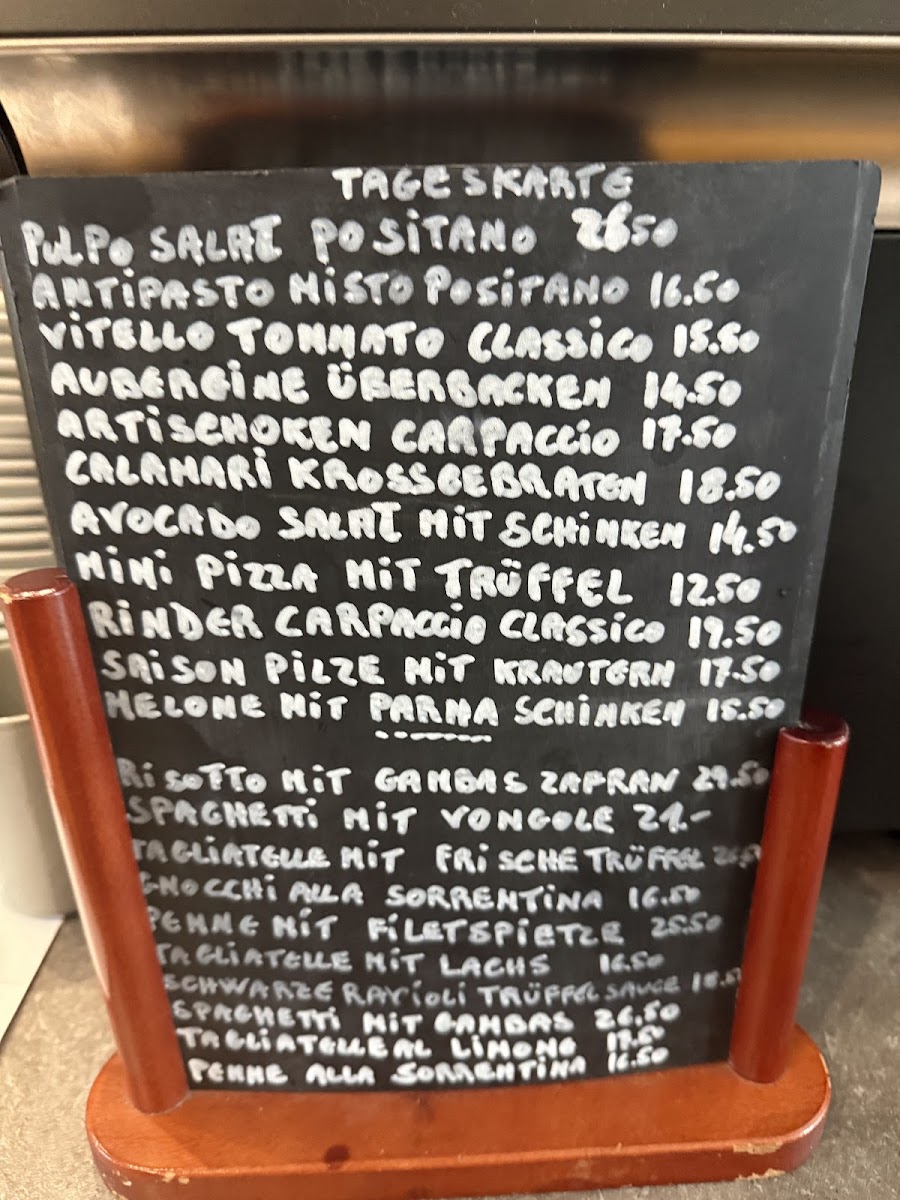 TAGESKARTE
PULPO SALAT POSITANO 26.50
ANTIPASTO MISTO POSITANO 16.50
VITELLO TOMMATO CLASSICO 15.50
AUBERGINE ÜBERBACKEN 14.50
ARTISCHOKEN CARPACCIO 17.50
CALAMARI KROSSGEBRATEN 18.50
AVOCADO SALAT MIT SCHINKEN 14.50
MINI PIZZA MIT TRÜFFEL 12.50
RINDER CARPACCIO CLASSICO 19.50
SAISON PILZE MIT KRAUTERN 17.50
MELONE MIT PARMA SCHINKEN 15.50
RISOTTO MIT GAMBAS ZAFRAN 29.50
SPAGHETTI MIT VONGOLE 21.-
TAGLIATELLE MIT FRISCHE TRÜFFEL
GNOCCHI ALLA SORRENTINA 16.50
PENNE MIT FILETSPIETZE 25.50
TAGLIATELLE MIT LACHS 16.50
SCHWARZE RAVIOLI TRÜFFELSAUCE 18.50
SPAGHETTI MIT GAMBAS 26.50
TAGLIATELLE AL LIMONO
PENNE ALLA SORRENTINA 16.50